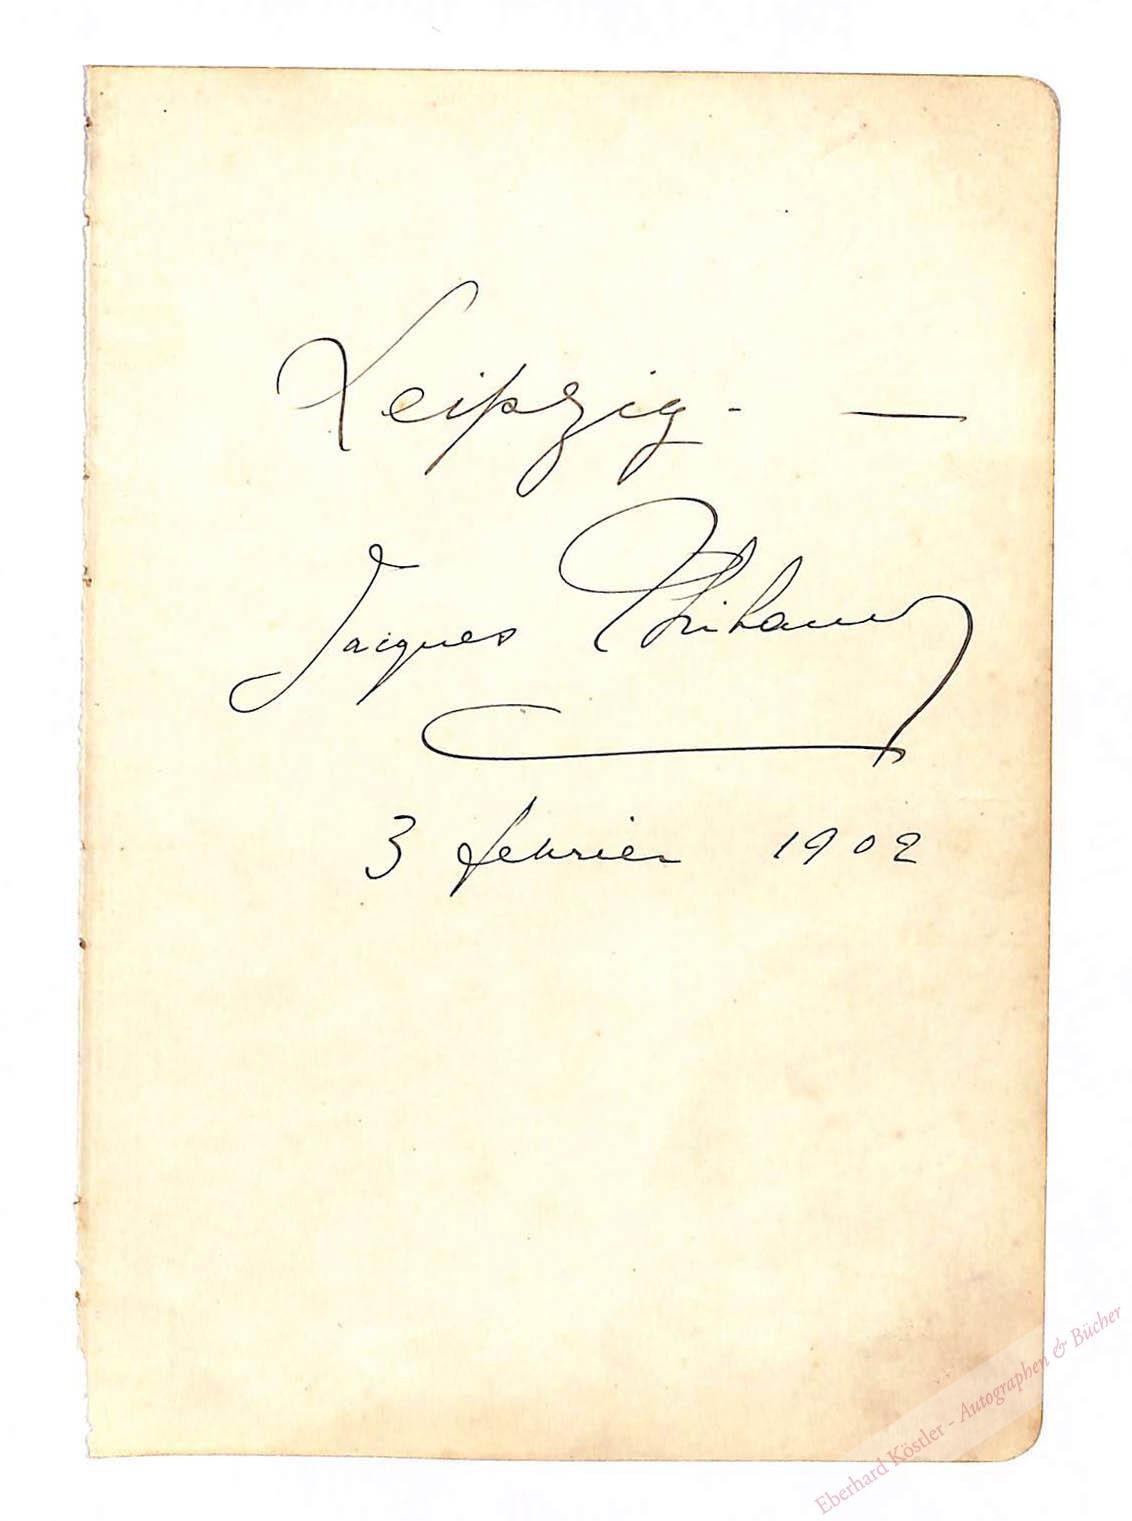 Leipzig. —
Jacques Thibaud
3 fevrier 1902
Eberhard Köstler - Autographen & Bücher